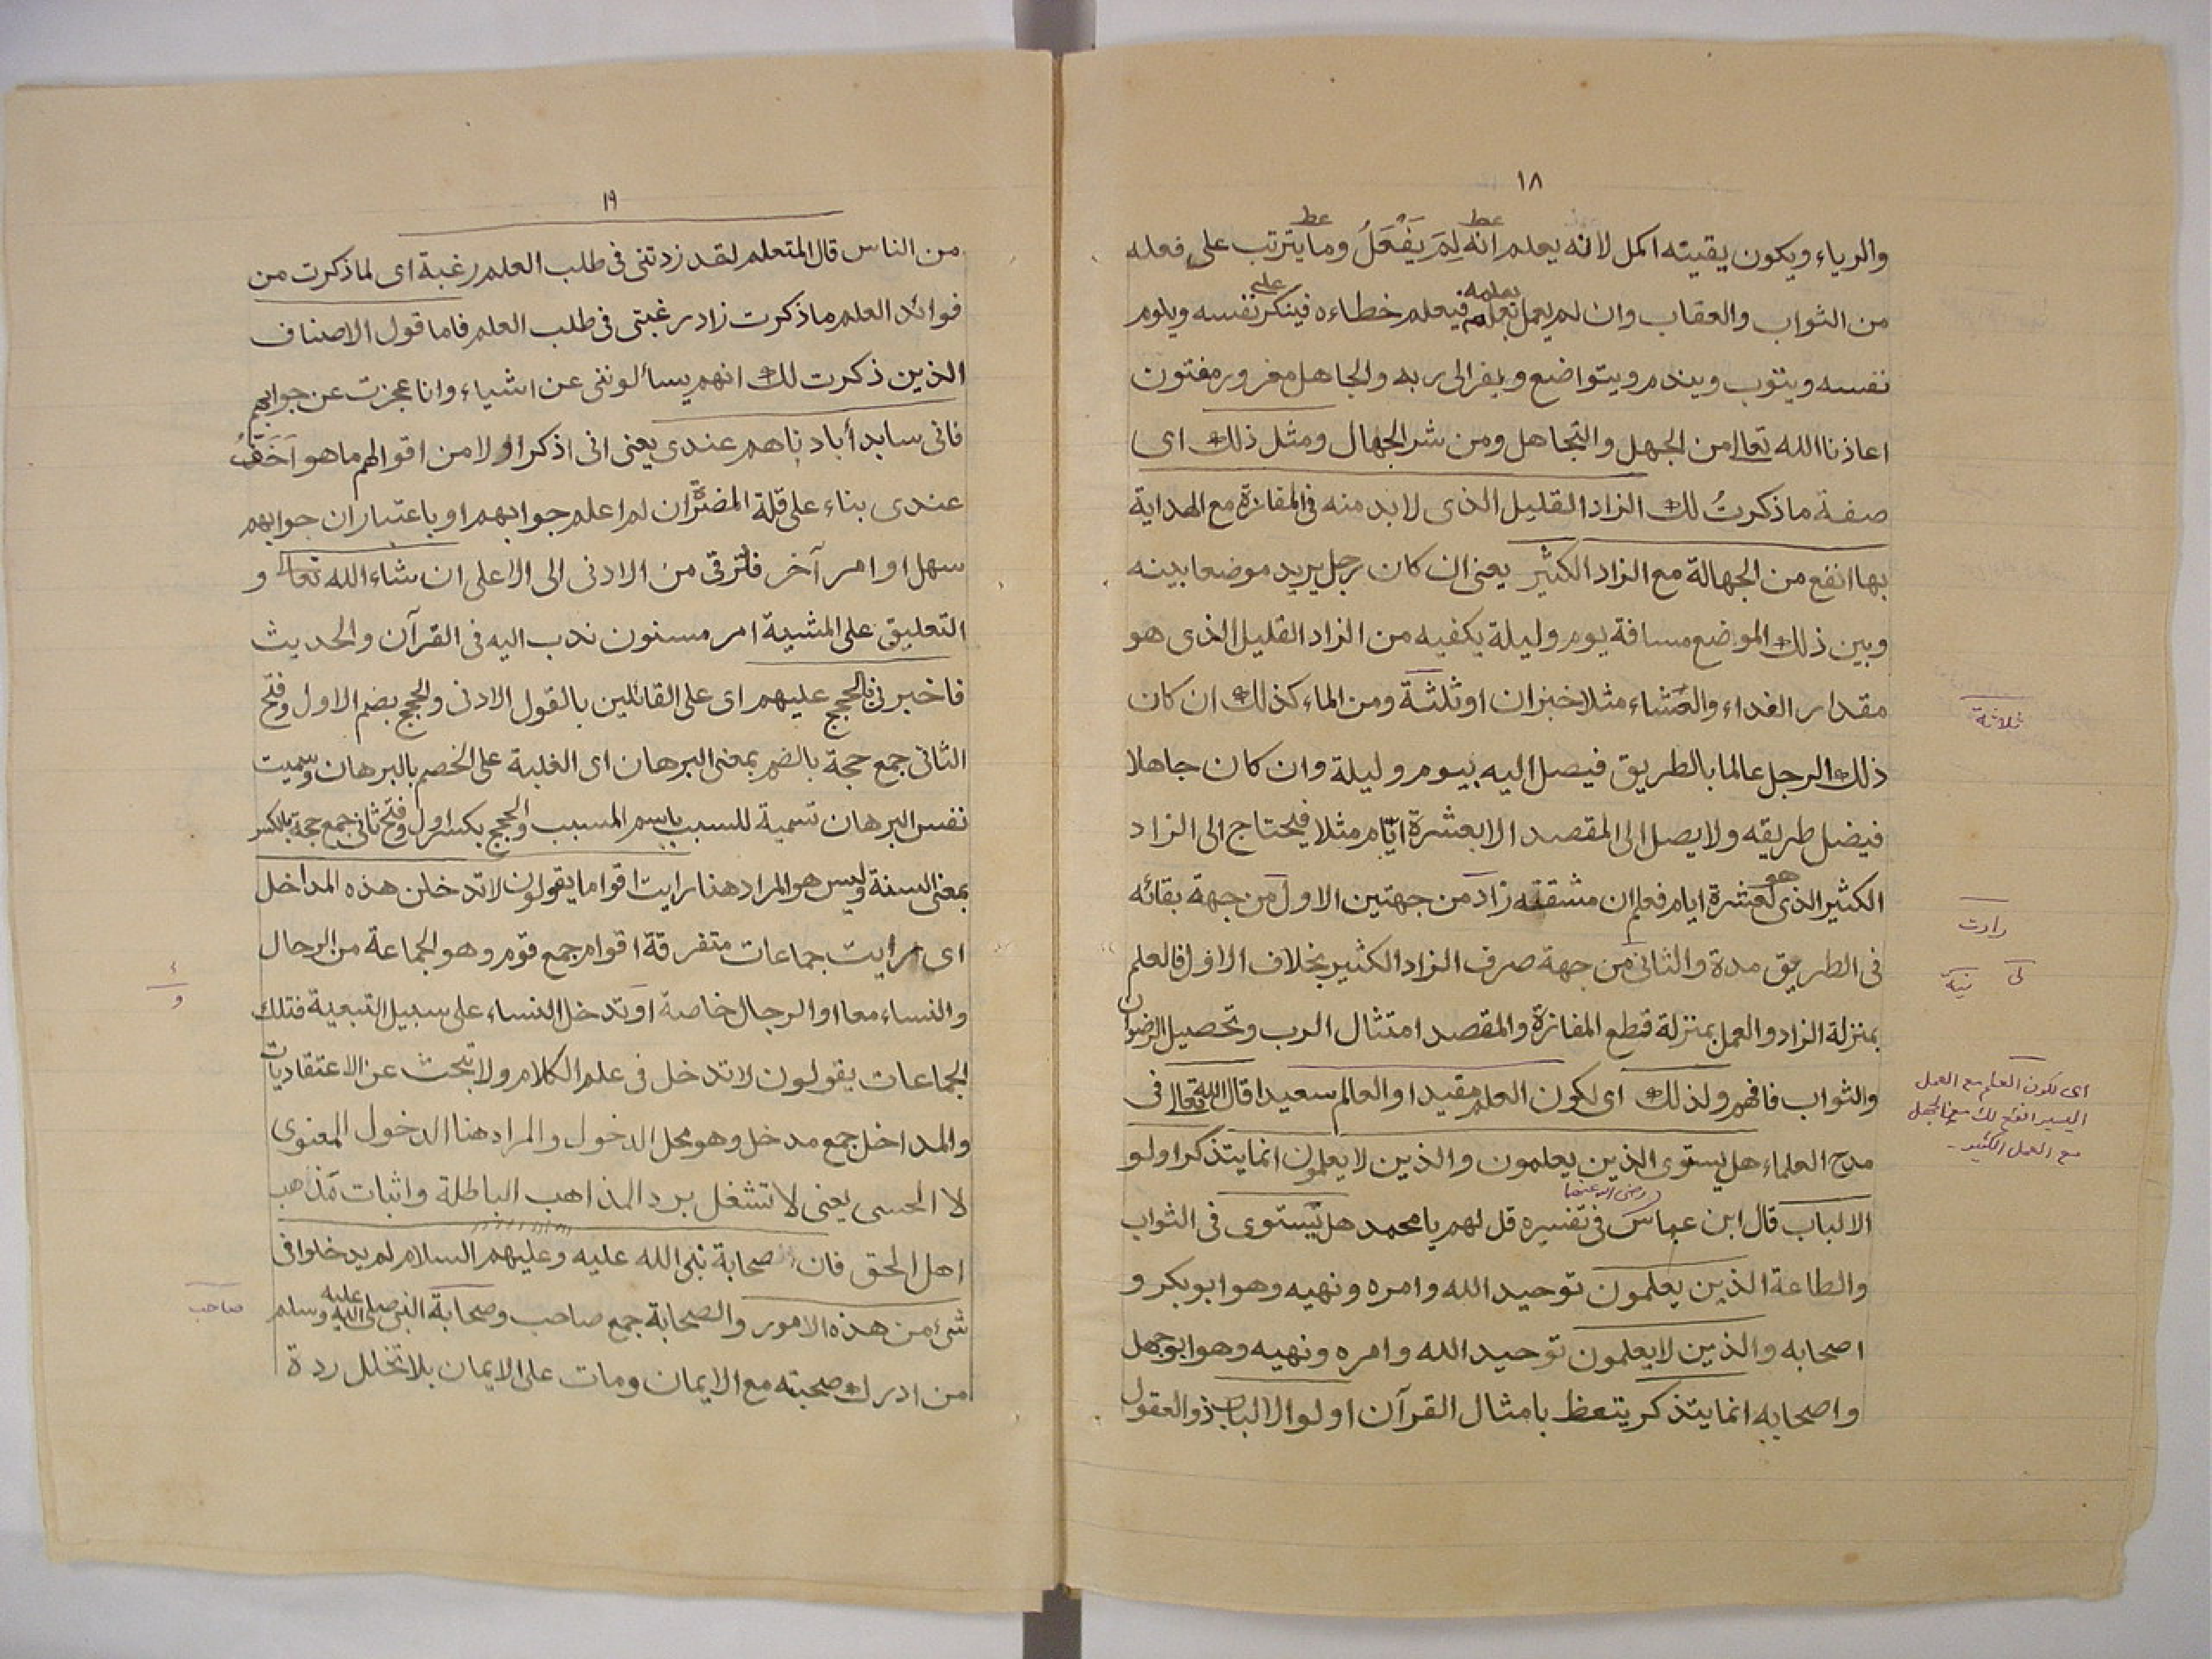 ١٨
والرياء ويكون يقينه اكمل لانه يعلم انه لِمَ يَفْعَلُ وما يترتب على فعله
من الثواب والعقاب وان لم يعمل بعلمه فيعلم خطاءه فينكر نفسه ويلوم
نفسه ويتوب ويندم ويتواضع ويفر الى ربه والجاهل مغرور مفتون
اعاذنا الله تعالى من الجهل والتجاهل ومن شر الجهال ومثل ذلك اى
صفة ما ذكرتُ لك الزاد القليل الذى لا بد منه فى المفازة مع الهداية
بها انفع من الجهالة مع الزاد الكثير يعنى ان كان رجل يريد موضعا بينه
وبين ذلك الموضع مسافة يوم وليلة يكفيه من الزاد القليل الذى هو
مقدار الغداء والعَشاء مثلا خبزان او ثلثة ومن الماء كذلك ان كان
ثلاثة
ذلك الرجل عالما بالطريق فيصل اليه بيوم وليلة وان كان جاهلا
فيضل طريقه ولا يصل الى المقصد الا بعشرة ايّام مثلا فيحتاج الى الزاد
الكثير الذى هو لعشرة ايام فعلم ان مشقته زاد من جهتين الاول من جهة بقائه
زادت
فى الطريق مدة والثانى من جهة صرف الزاد الكثير بخلاف الاول فالعلم
بمنزلة الزاد والعمل بمنزلة قطع المفازة والمقصد امتثال الرب وتحصيل الرضوان
والثواب فافهم ولذلك اى لكون العلم مقيدا والعالم سعيدا قال الله تعالى فى
اى لكون العلم مع العمل
اليسير انفع لك من الجهل
مع العمل الكثير
مدح العلماء هل يستوى الذين يعلمون والذين لا يعلمون انما يتذكر اولو
الالباب قال ابن عباس رضى الله عنهما فى تفسيره قل لهم يا محمد هل يستوى فى الثواب
والطاعة الذين يعلمون توحيد الله وامره ونهيه وهو ابو بكر و
اصحابه والذين لا يعلمون توحيد الله وامره ونهيه وهو ابو جهل
واصحابه انما يتذكر يتعظ بامثال القرآن اولو الالباب ذو العقول
١٩
من الناس قال المتعلم لقد زدتنى فى طلب العلم رغبة اى لما ذكرت من
فوائد العلم ما ذكرت زاد رغبتى فى طلب العلم فاما قول الاصناف
الذين ذكرت لك انهم يسألوننى عن اشياء وانا عجزت عن جوابهم
فانى سابد أباد ناهم عندى يعنى انى اذكر اولا من اقوالهم ما هو اَخَفُّ
عندى بناء على قلة المضرّة ان لم اعلم جوابهم او باعتبار ان جوابهم
سهل او امر آخر فلترقى من الادنى الى الاعلى ان شاء الله تعالى و
التعليق على المشية امر مسنون ندب اليه فى القرآن والحديث
فاخبرنى بالحجج عليهم اى على القائلين بالقول الادنى والحجج بضم الاول وفتح
الثانى جمع حجة بالضم بمعنى البرهان اى الغلبة على الخصم بالبرهان وسميت
نفس البرهان تسمية للسبب باسم المسبب والحجج بكسر اول وفتح ثانى جمع حجة بالكسر
بمعنى السنة وليس هو المراد هنا رايت اقواما يقولون لا تدخلن هذه المداخل
اى رايت جماعات متفرقة اقوام جمع قوم وهو الجماعة من الرجال
والنساء معا او الرجال خاصة او تدخل النساء على سبيل التبعية فتلك
الجماعات يقولون لا تدخل فى علم الكلام ولا تبحث عن الاعتقاديات
والمداخل جمع مدخل وهو محل الدخول والمراد هنا الدخول المعنوى
لا الحسى يعنى لا تشغل برد المذاهب الباطلة واثبات مذاهب
اهل الحق فان صحابة نبى الله عليه وعليهم السلام لم يدخلوا فى
شئ من هذه الامور والصحابة جمع صاحب وصحابة النبى صلى الله عليه وسلم
صاحب
من ادرك صحبته مع الايمان ومات على الايمان بلا تخلل ردة